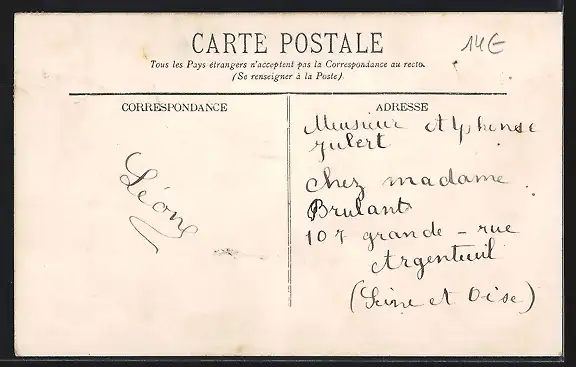 CARTE POSTALE
14€
Tous les Pays étrangers n'acceptent pas la Correspondance au recto.
(Se renseigner à la Poste)
CORRESPONDANCE
Léony
ADRESSE
Monsieur Alphonse
Julert
Chez madame
Brulant
107 grande - rue
Argenteuil
(Seine et Oise)